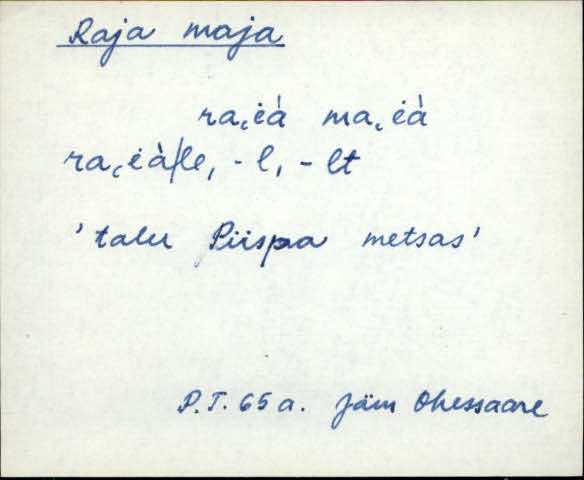 Raja maja
ra˛i̯à ma˛i̯à
ra˛i̯à/le, -l, -lt
'talu Piispa metsas'
P.T. 65 a. Jäm Ohessaare